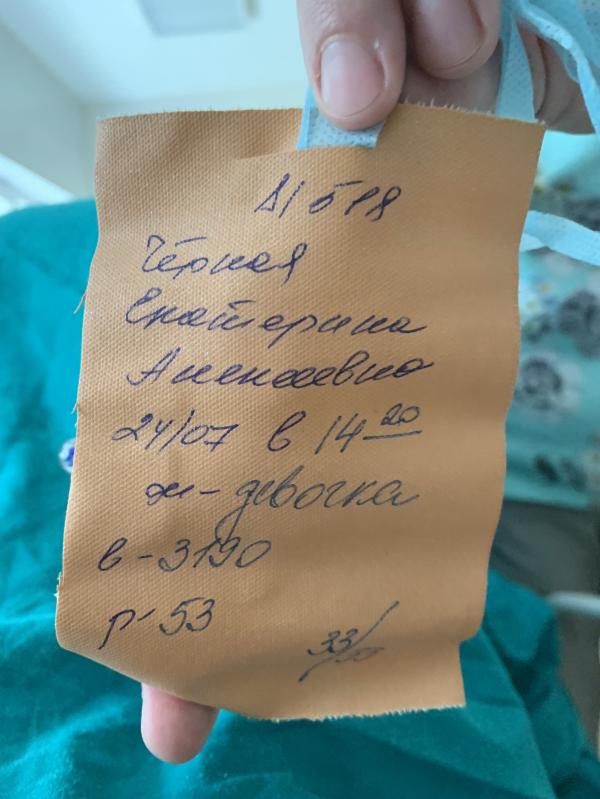 Чёрная
Екатерина
Алексеевна
24/07 в 14 20
ж - девочка
в - 3190
р - 53
33/